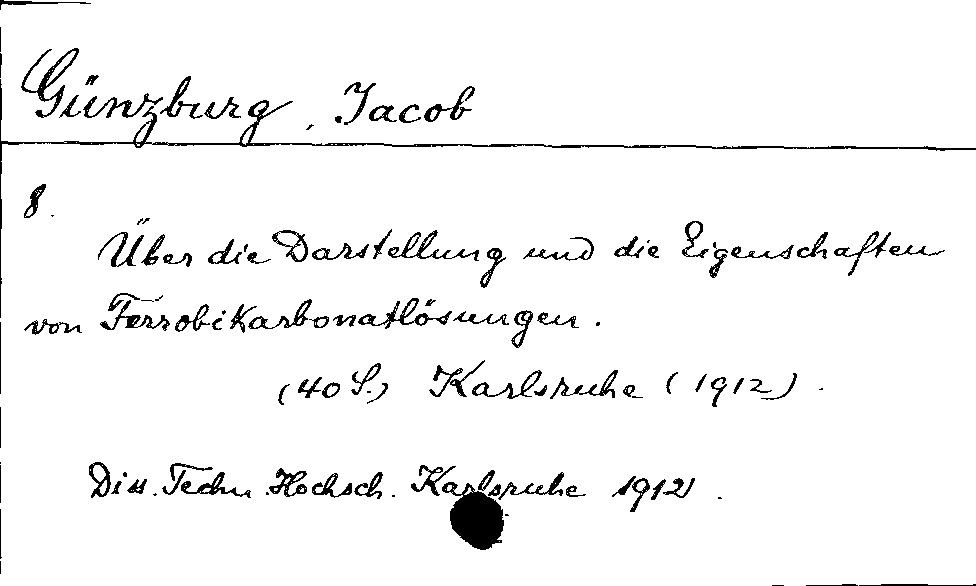 Günzburg, Jacob
8.
Über die Darstellung und die Eigenschaften
von Ferrobikarbonatlösungen.
(40 S.) Karlsruhe (1912).
Diss. Techn. Hochsch. Karlsruhe 1912.